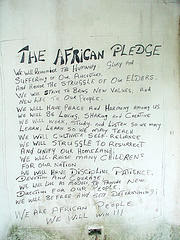 THE AFRICAN PLEDGE
WE WILL REMEMBER THE HUMANITY, GLORY AND
SUFFERINGS OF OUR ANCESTORS,
AND HONOR THE STRUGGLE OF OUR ELDERS.
WE WILL STRIVE TO BRING NEW VALUES, AND
NEW LIFE TO OUR PEOPLE.
WE WILL HAVE PEACE AND HARMONY AMONG US
WE WILL BE LOVING, SHARING AND CREATIVE
WE WILL WORK, STUDY AND LISTEN SO WE MAY
LEARN, LEARN SO WE MAY TEACH
WE WILL CULTIVATE SELF-RELIANCE
WE WILL STRUGGLE TO RESURRECT
AND UNIFY OUR HOMELAND
WE WILL RAISE MANY CHILDREN'S
FOR OUR NATION
WE WILL HAVE DISCIPLINE, PATIENCE,
DEVOTION AND COURAGE
WE WILL LIVE AS MODELS TO PROVIDE NEW
DIRECTION FOR OUR PEOPLE
WE WILL BE FREE AND SELF DETERMINING
WE ARE AFRICAN PEOPLE
WE WILL WIN!!!